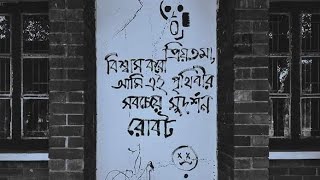 প্রিয়তমা,
বিশ্বাস করো
আমি এই পৃথিবীর
সবচেয়ে সুদর্শন
রোবট